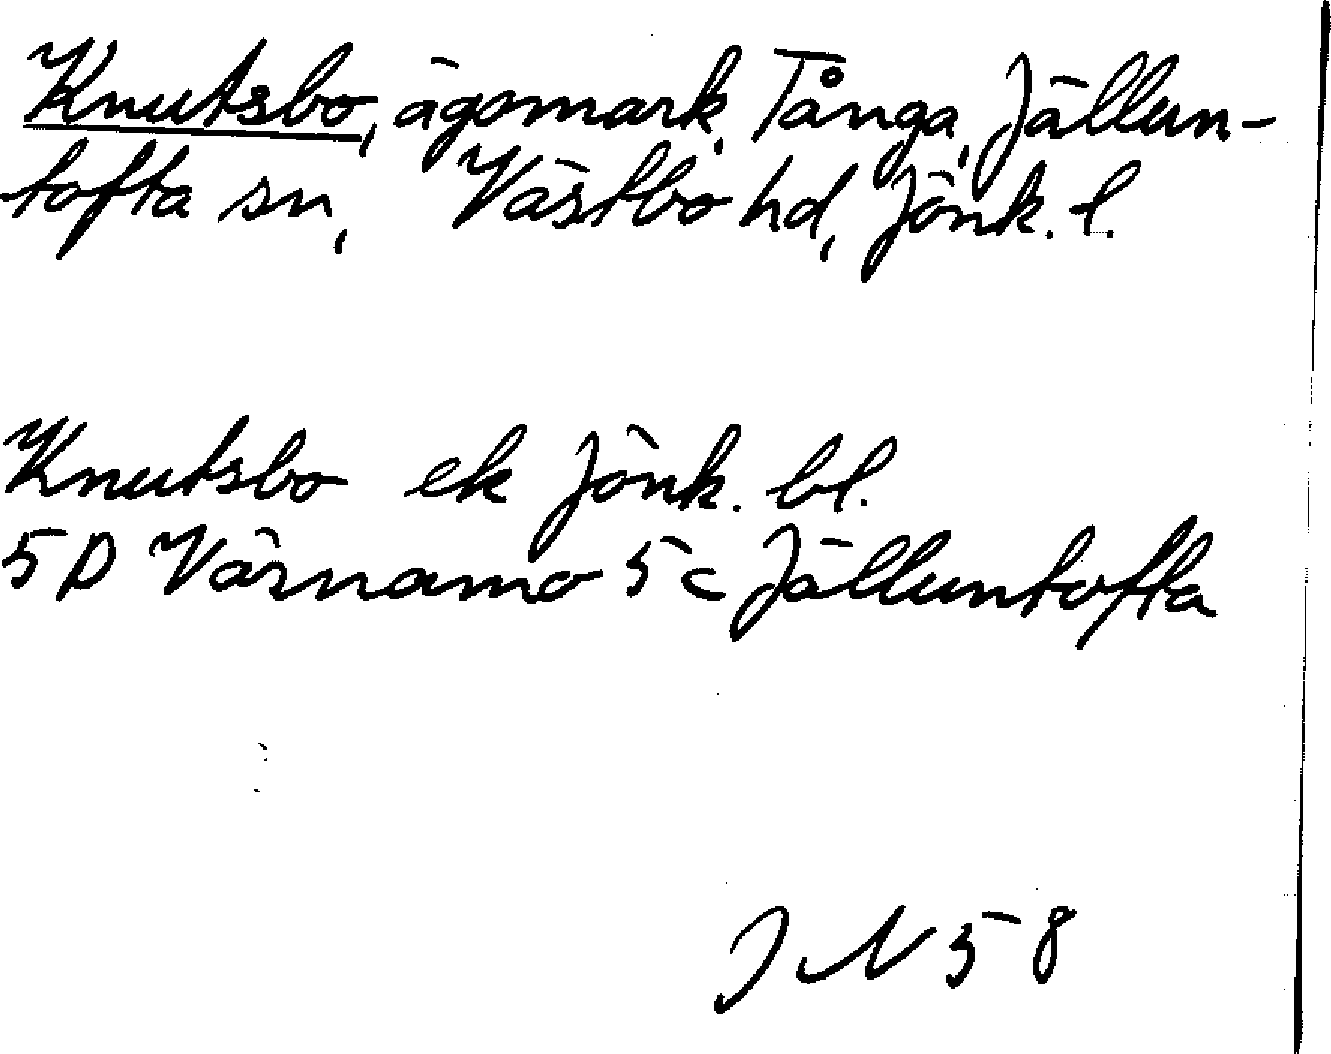 Knutsbo, ägomark, Tånga, Jällun-
tofta sn, Västbo hd, Jönk. l.
Knutsbo ek Jönk. bl.
5D Värnamo 5c Jälluntofta
JN 58